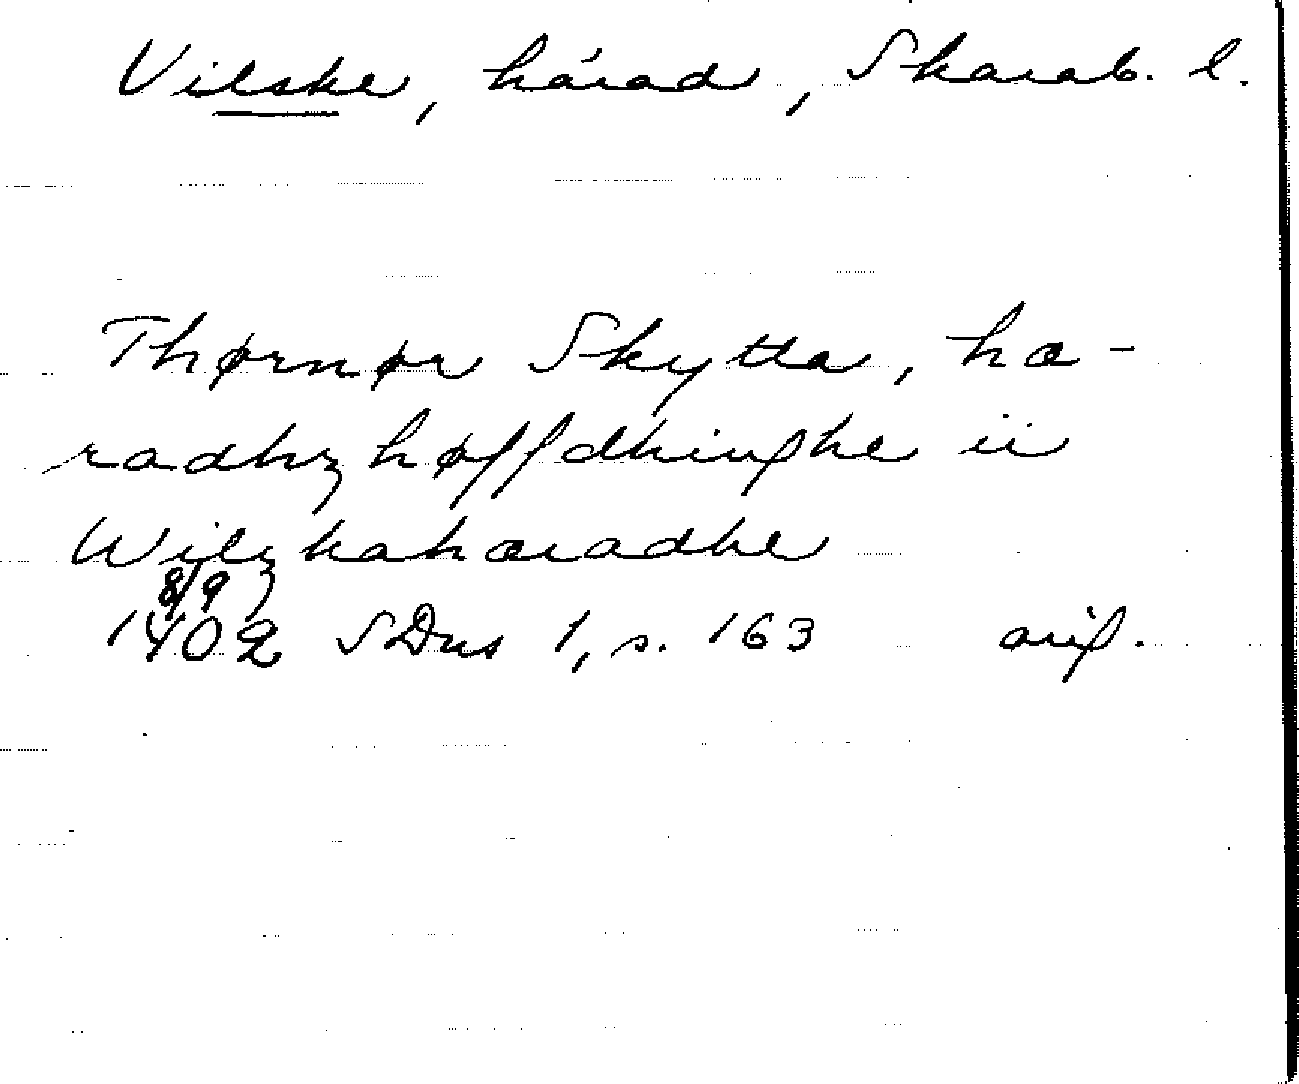 Vilske, härad, Skarab. l.
Thørnør Skytta, hæ-
radhz høffdhinghe ii
Wilzkahæradhe
8/9
1402 SDns 1, s. 163 orig.